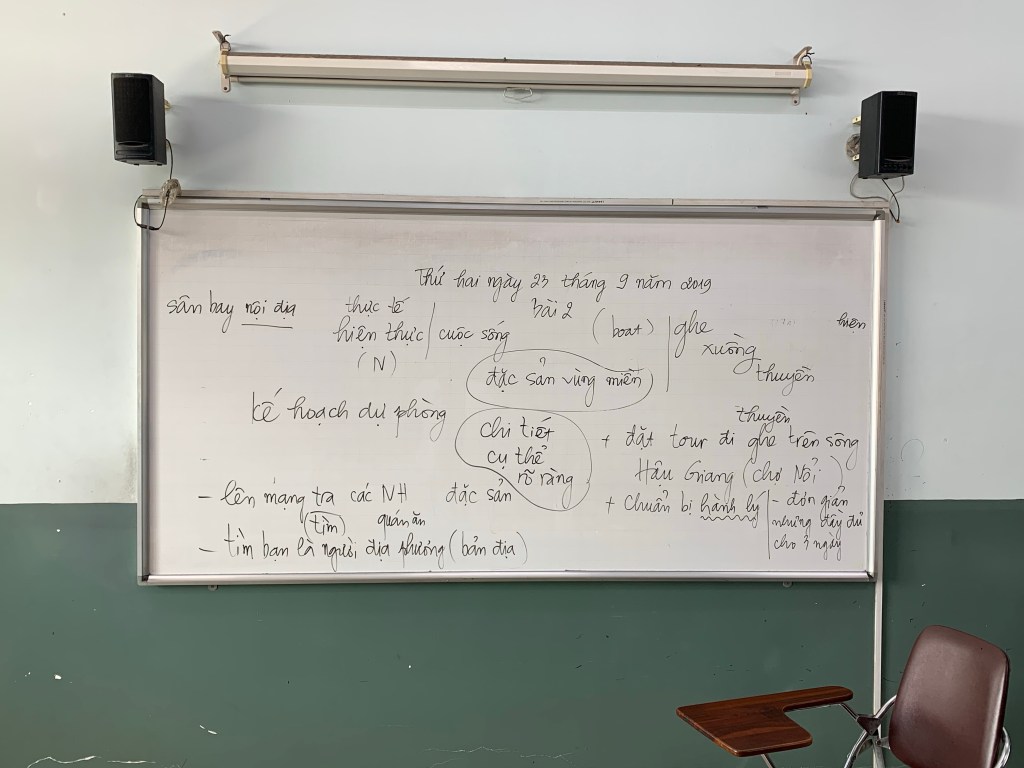 Thứ hai ngày 23 tháng 9 năm 2019
Bài 2
sân bay nội địa
thực tế
hiện thực | cuộc sống
(N)
(boat) | ghe
xuồng
thuyền
hiện
đặc sản vùng miền
kế hoạch dự phòng
chi tiết
cụ thể
rõ ràng
thuyền
+ đặt tour đi ghe trên sông
Hậu Giang (chợ Nổi)
+ Chuẩn bị hành lý | - đơn giản
nhưng đầy đủ
cho 3 ngày
- lên mạng tra các NH đặc sản
(tìm) quán ăn
- tìm bạn là người địa phương (bản địa)